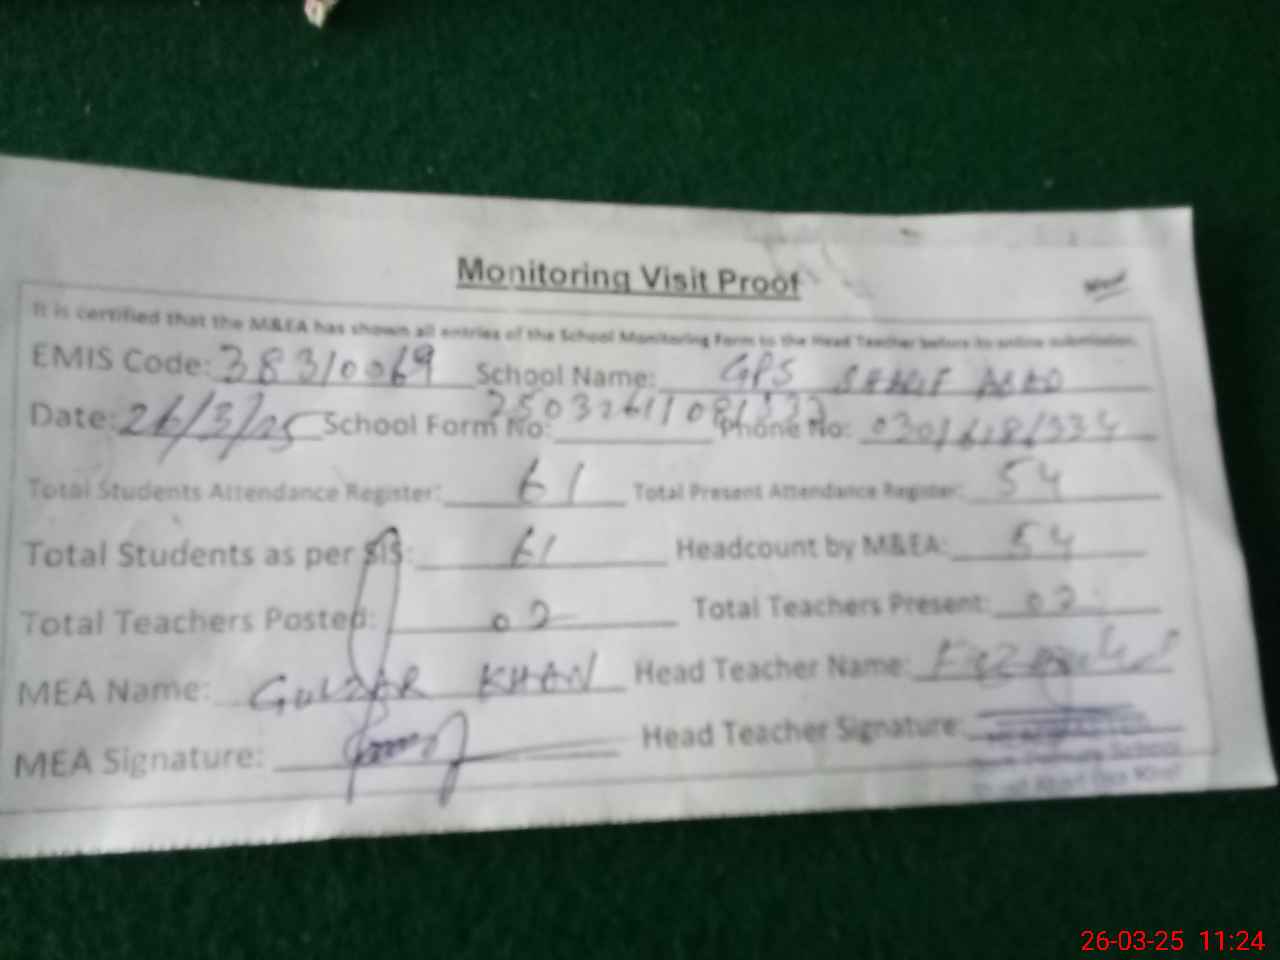 Monitoring Visit Proof
It is certified that the M&EA has shown all entries of the School Monitoring Form to the Head Teacher before its online submission.
EMIS Code: 38310069 School Name: GPS SHARIF ABAD
Date: 26/3/25 School Form No: Phone No:
Total Students Attendance Register: 61 Total Present Attendance Register: 54
Total Students as per SIS: 61 Headcount by M&EA: 54
Total Teachers Posted: 02 Total Teachers Present: 02
MEA Name: GULZAR KHAN Head Teacher Name:
MEA Signature: Head Teacher Signature:
Primary School
26-03-25 11:24